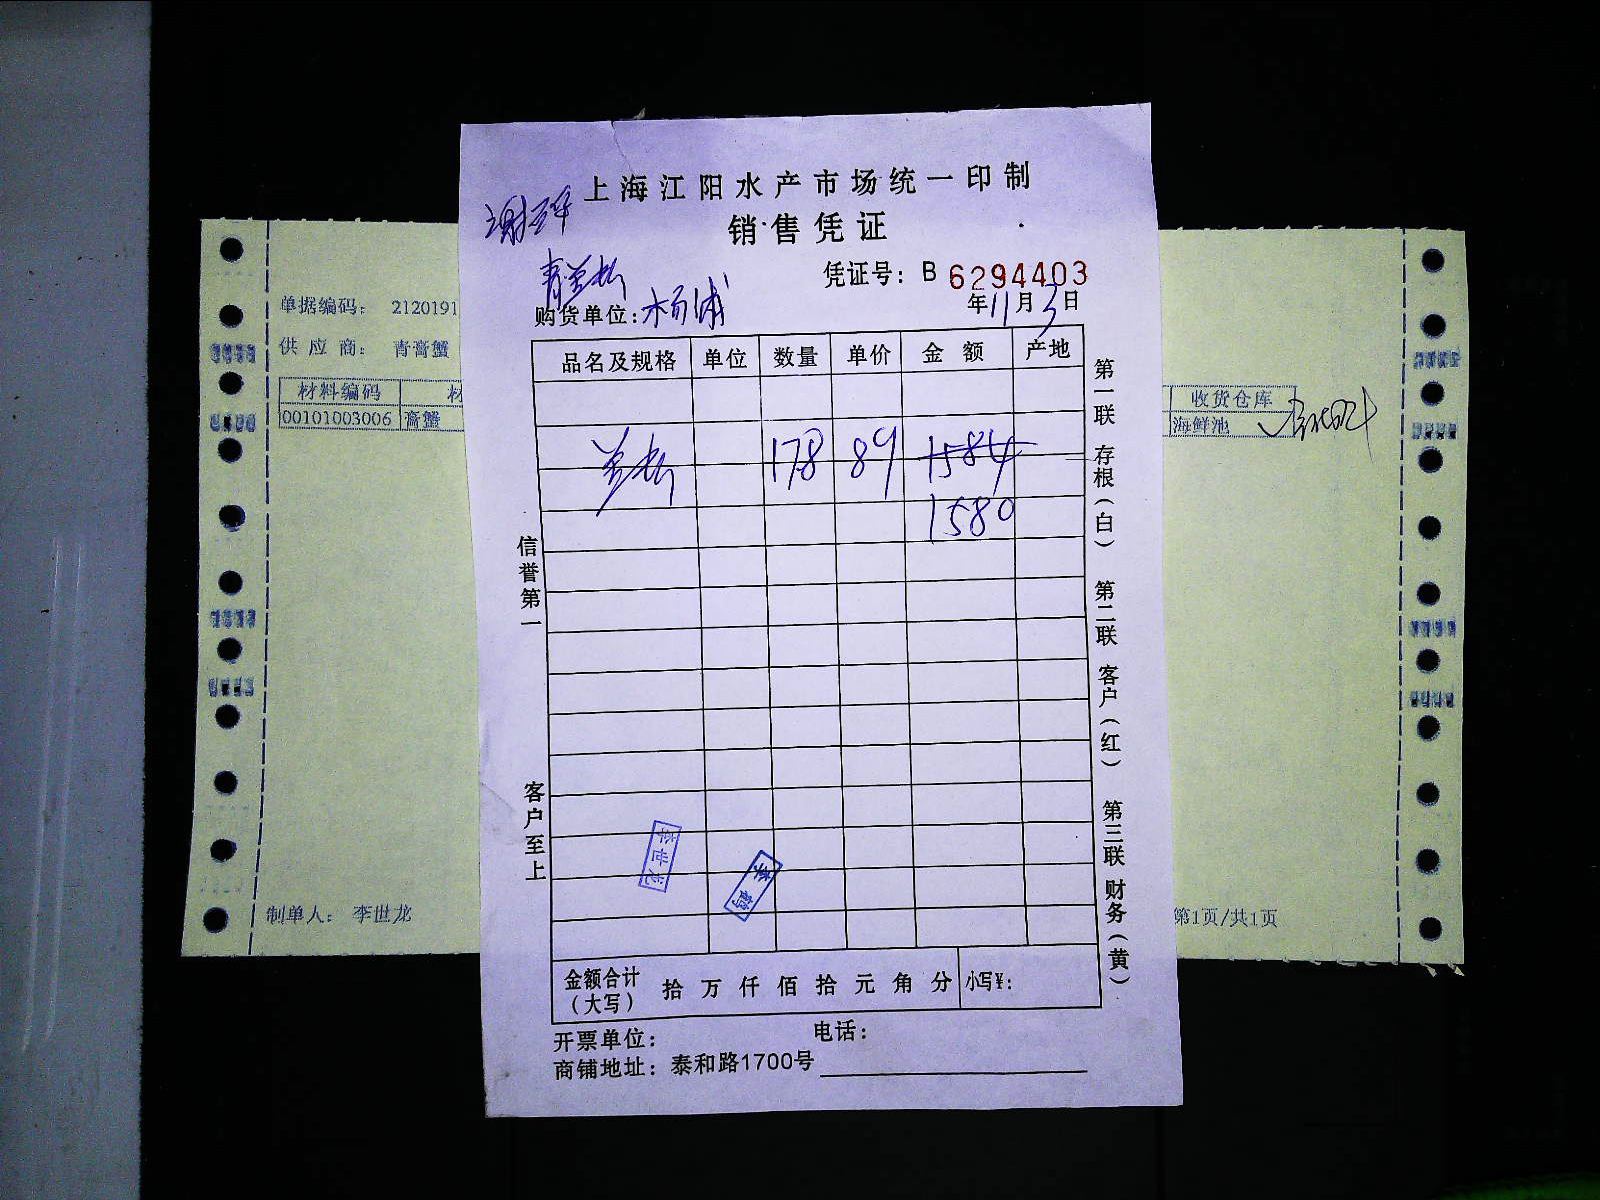 上海江阳水产市场统一印制
销售凭证
凭证号: B 6294403
购货单位: 杨浦
年11月3日
品名及规格 单位 数量 单价 金额 产地
178 89 1584
1580
信誉第一
客户至上
第一联 存根(白) 第二联 客户(红) 第三联 财务(黄)
李世龙
金额合计(大写) 拾万仟佰拾元角分 小写¥:
开票单位: 电话:
商铺地址: 泰和路1700号
单据编码: 2120191
供应商: 青膏蟹
材料编码 材
00101003006 膏蟹
制单人: 李世龙
收货仓库
海鲜池
第1页/共1页